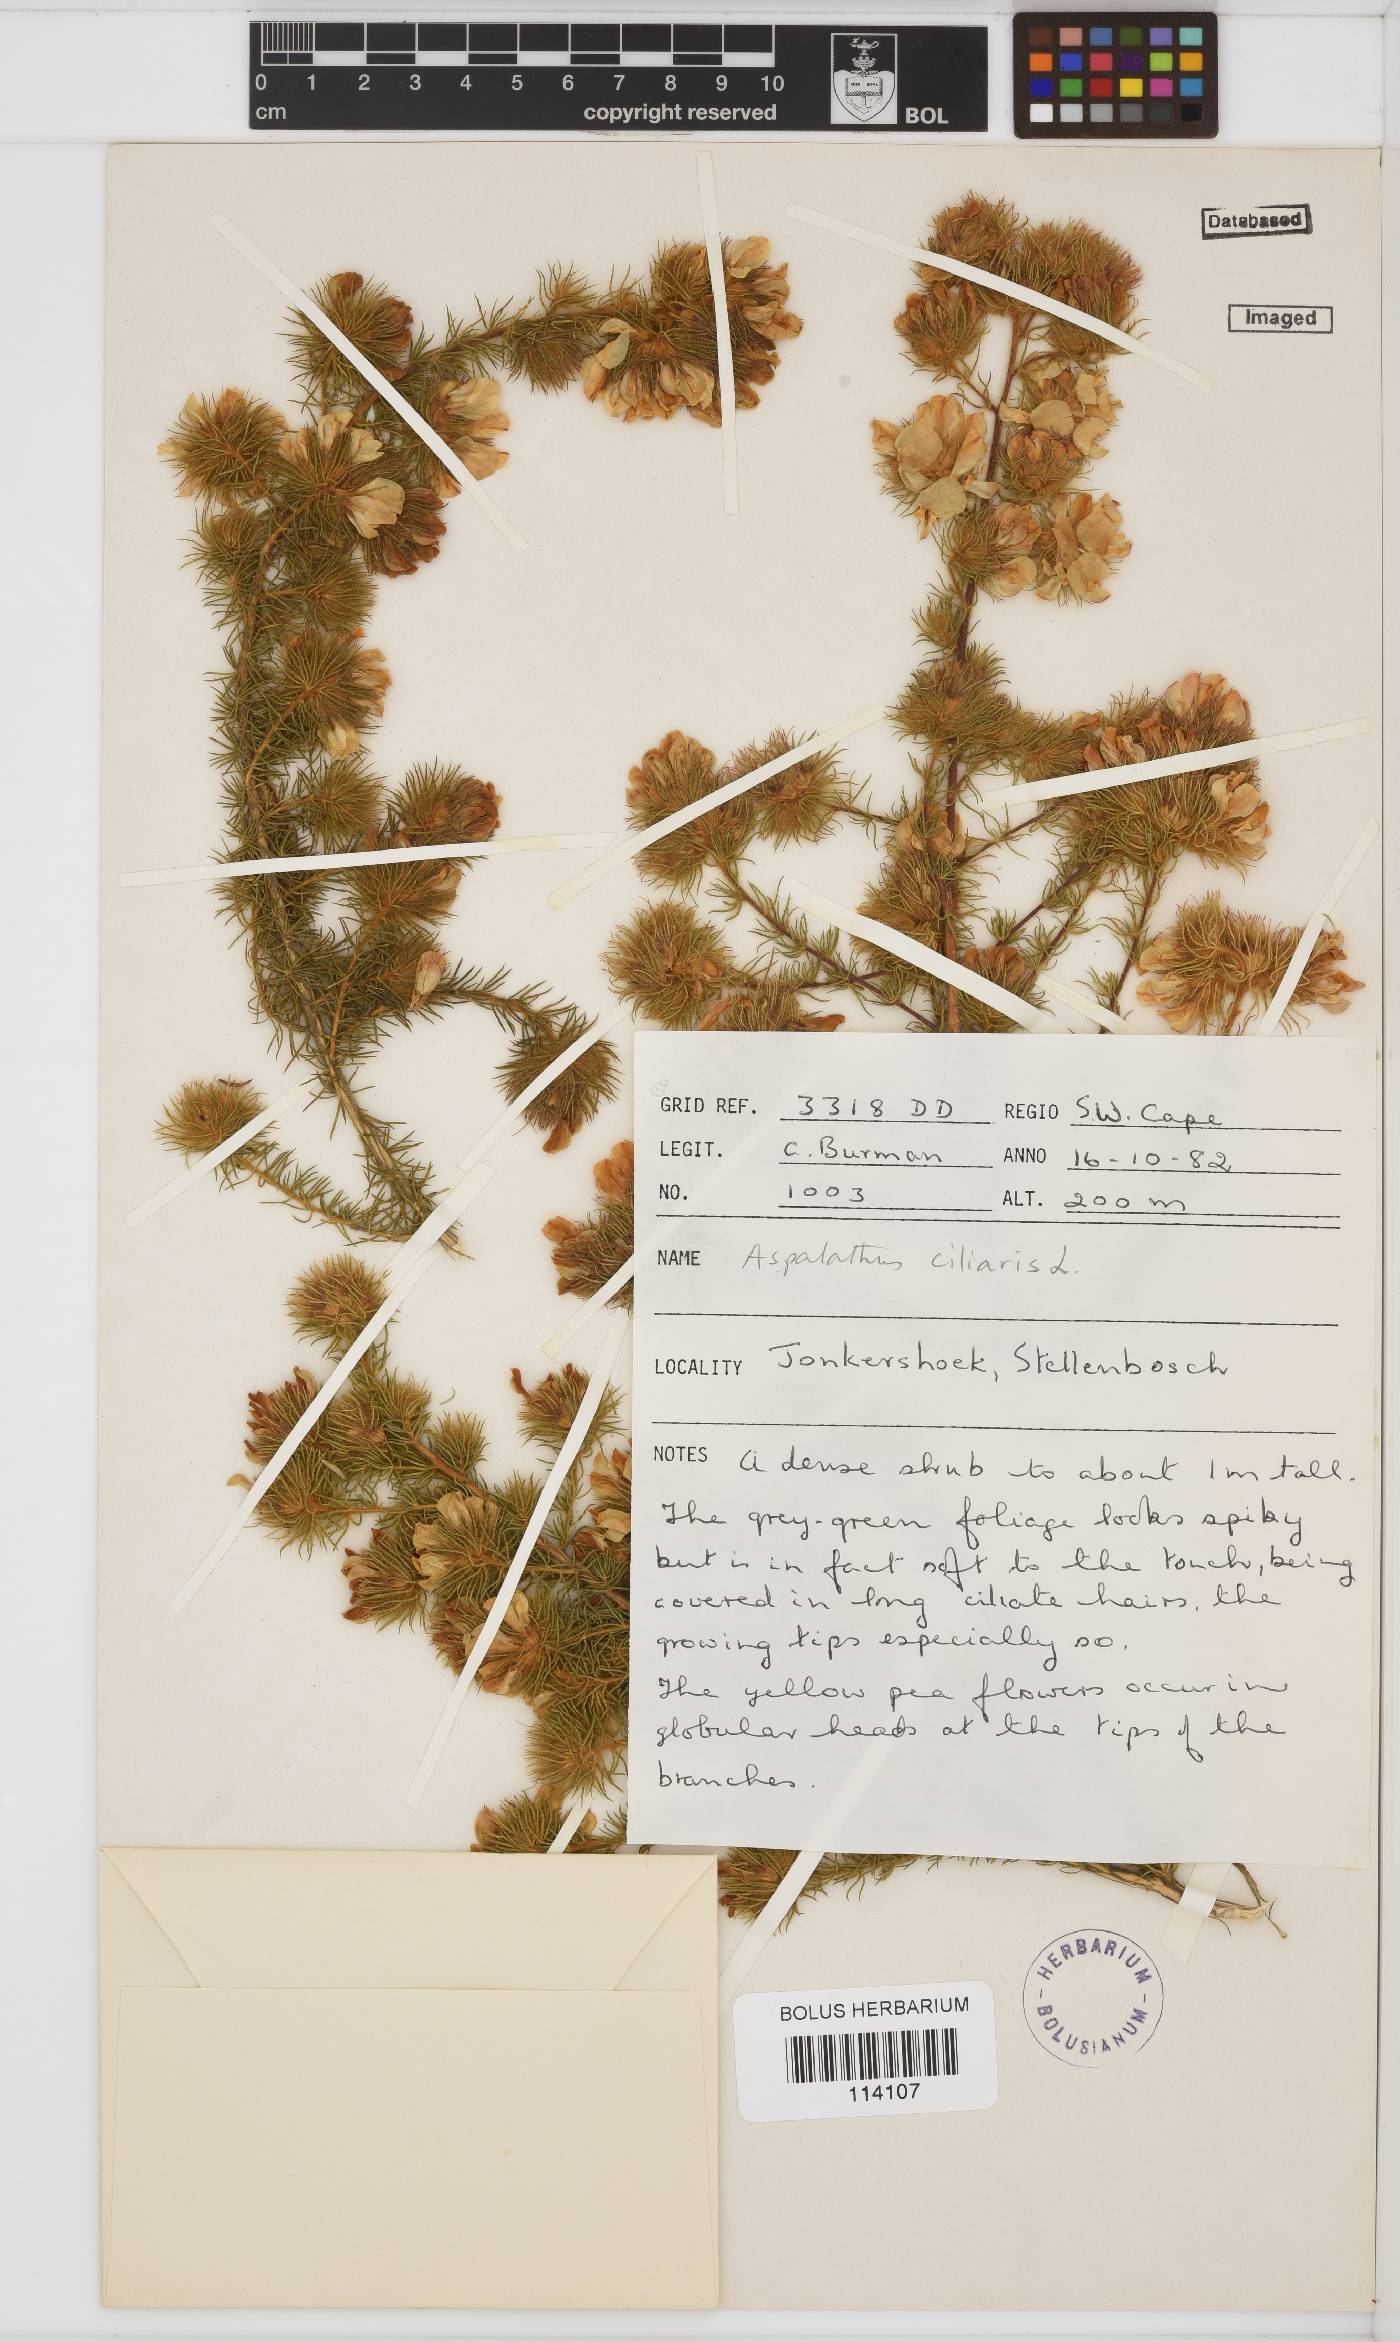 0 1 2 3 4 5 6 7 8 9 10
cm copyright reserved BOL
Databased
Imaged
GRID REF. 3318 DD REGIO S.W. Cape
LEGIT. C. Burman ANNO 16-10-82
NO. 1003 ALT. 200 m
NAME Aspalathus ciliaris L.
LOCALITY Jonkershoek, Stellenbosch
NOTES A dense shrub to about 1m tall.
The grey-green foliage looks spiky
but is in fact soft to the touch, being
covered in long ciliate hairs, the
growing tips especially so.
The yellow pea flowers occur in
globular heads at the tips of the
branches.
HERBARIUM
BOLUSIANUM
BOLUS HERBARIUM
114107